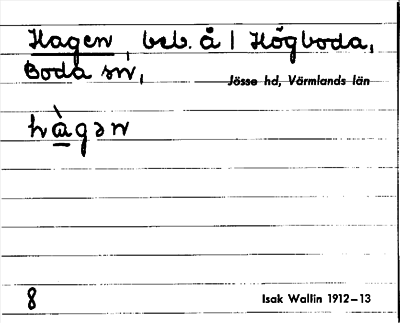 Hagen, beb. å 1 Högboda,
Boda sn,
Jösse hd, Värmlands län
hàgən
8
Isak Wallin 1912–13